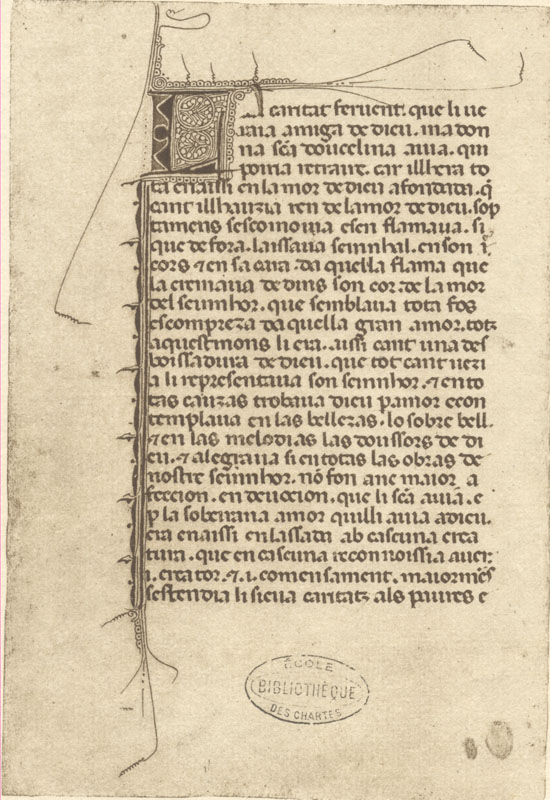 La caritat feruent. que li ue
raia amiga de dieu. ma don
na sća doucelina auia. qui
poiria retraire. car illhera to
ta enaissi en lamor de dieu afondada. q̃
cant illhauzia ren de lamor de dieu. sop
tamens sescomouia e sen flamaua. si
que de fora. laissaua seinnhal. en son
cors ⁊ en sa cara. da quella flama que
la cremaua de dins son cor. de la mor
del seinnhor. que semblaua tota fos
escompreza da quella gran amor. totz
aquestz mons li era. aissi cant una des
boissadura de dieu. que tot cant uezi
a li representaua son seinnhor. ⁊ en to
tas cauzas trobaua dieu p amor e con
templaua en las bellezas. lo sobre bell.
⁊ en las melodias las doussors de di
eu. ⁊ alegraua si en totas las obras de
nostre seinnhor. nō fon anc maior a
feccion. en deuocion. que li sća auia. e
p la sobeirana amor quilli auia a dieu.
era enaissi enlassada ab cascuna crea
tura. que en cascuna reconnoissia auer
.i. creator. ⁊ .i. comensament. maiormēs
sestendia li sieua caritatz als paures e
ÉCOLE
BIBLIOTHÈQUE
DES CHARTES